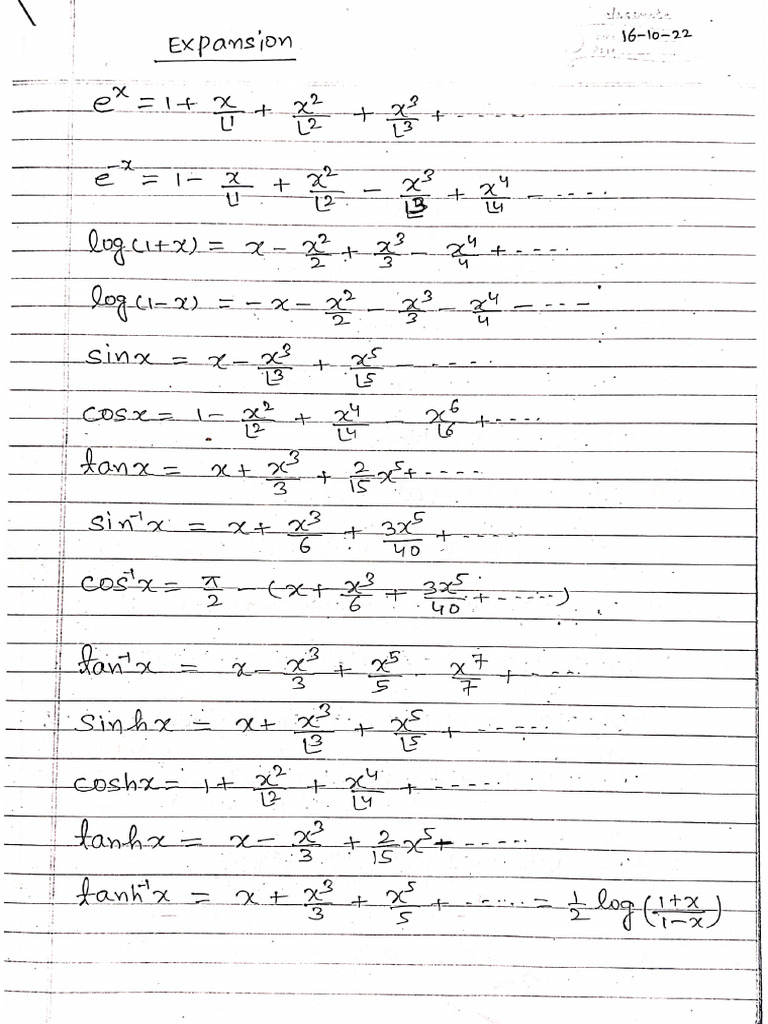 16-10-22
Expansion
e^x = 1 + x/⌊1 + x^2/⌊2 + x^3/⌊3 + -----
e^-x = 1 - x/⌊1 + x^2/⌊2 - x^3/⌊3 + x^4/⌊4 - -----
log(1+x) = x - x^2/2 + x^3/3 - x^4/4 + ----
log(1-x) = -x - x^2/2 - x^3/3 - x^4/4 - ----
sinx = x - x^3/⌊3 + x^5/⌊5 - -----
cosx = 1 - x^2/⌊2 + x^4/⌊4 - x^6/⌊6 + ----
tanx = x + x^3/3 + 2/15 x^5 + ----
sin^-1x = x + x^3/6 + 3x^5/40 + -----
cos^-1x = π/2 - (x + x^3/6 + 3x^5/40 + -----)
tan^-1x = x - x^3/3 + x^5/5 - x^7/7 + ----
sinhx = x + x^3/⌊3 + x^5/⌊5 + -----
coshx = 1 + x^2/⌊2 + x^4/⌊4 + -----
tanhx = x - x^3/3 + 2/15 x^5 + -----
tanh^-1x = x + x^3/3 + x^5/5 + ----- = 1/2 log(1+x/1-x)